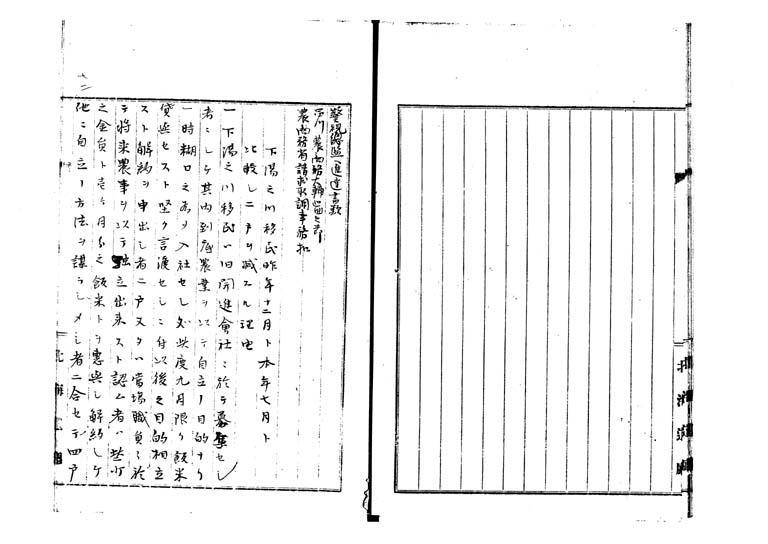 下湯之川移民昨年十二月ト本年七月ト
比較シ二戸ヲ減スル理由
一下湯之川移民ハ旧開進會社ニ於テ募集セシ
者ニシテ其内到底農業ヲ以テ自立ノ目的ナク
一時糊口之為メ入社セシ処此度九月限リ飯米
貸与セスト堅ク言渡セシニ付以後之目的相立
スト解約ヲ申出シ者二戸又タハ當場職員ニ於
テ将来農事ヲ以テ独立出来スト認ム者ハ些少
之金員ト壱ケ月分之飯米トヲ恵與シ解約シテ
他ニ自立ノ方法ヲ謀ラシメシ者二合セテ四戸
北海道廳